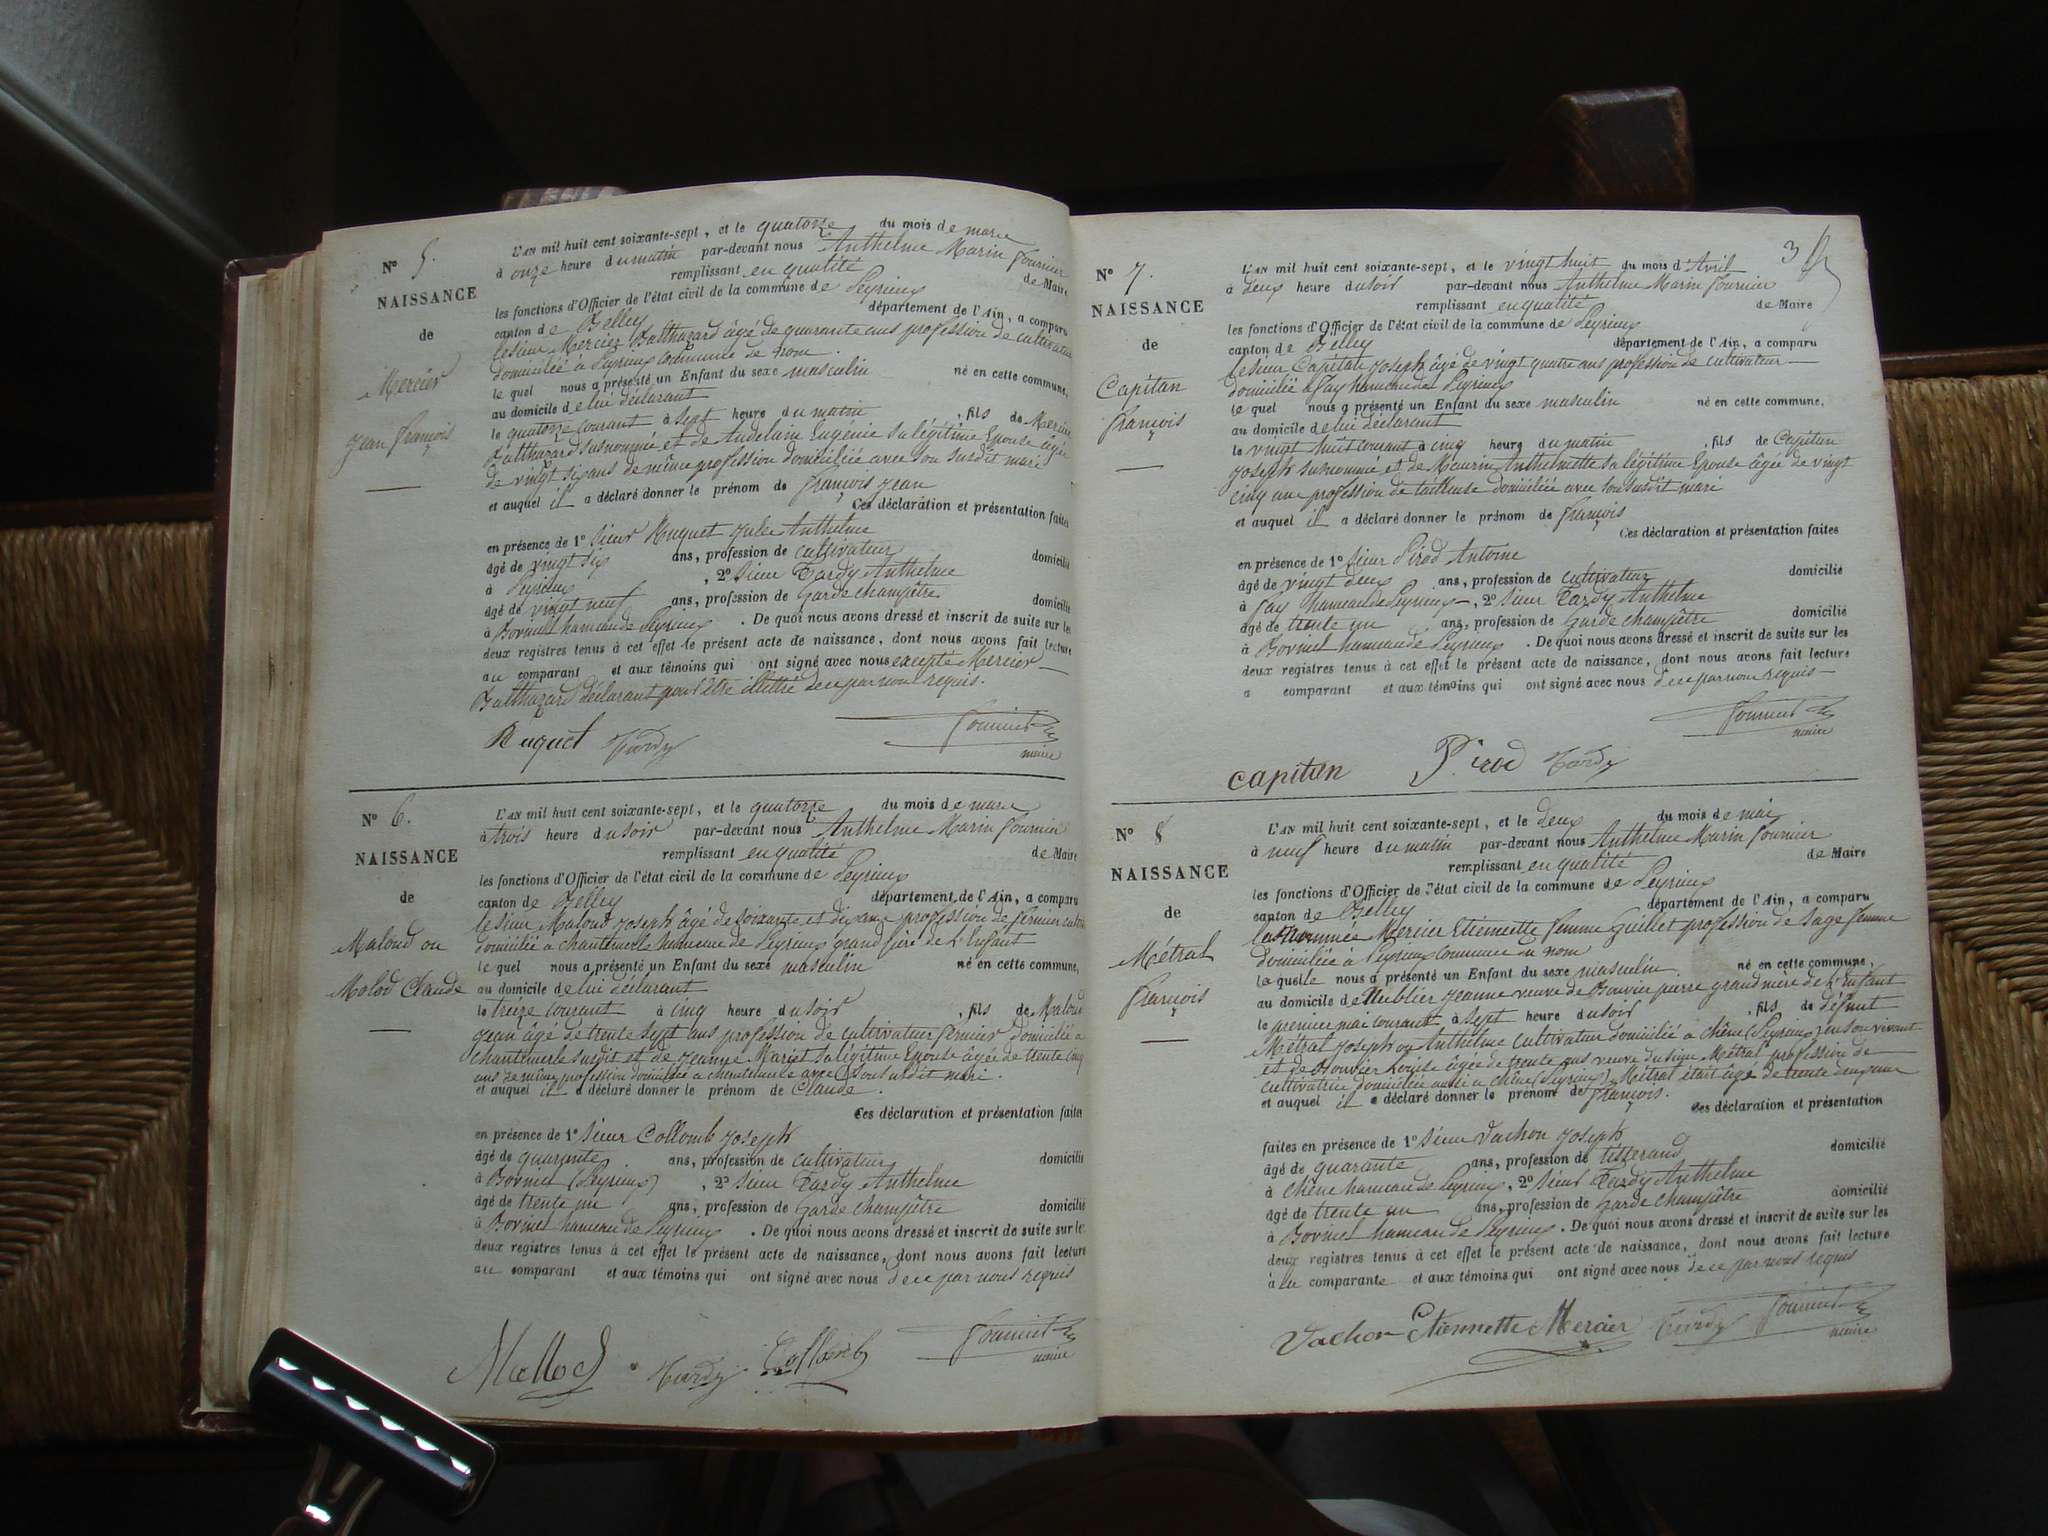 N° 5.
NAISSANCE
de
Mercier
Jean François
L'AN mil huit cent soixante-sept, et le quatorze du mois de mars
à onze heure du matin par-devant nous Anthelme Marin Fournier
remplissant en qualité de Maire
les fonctions d'Officier de l'état civil de la commune de Peyrieux
canton de Belley département de l'Ain, a comparu
le sieur Mercier Balthazard âgé de quarante ans profession de cultivateur
domicilié à Peyrieux commune de nom.
le quel nous a présenté un Enfant du sexe masculin né en cette commune,
au domicile de lui déclarant
le quatorze courant à sept heure du matin, fils de Mercier
Balthazard susnommé et de Andelain Eugénie sa légitime Epouse âgée
de vingt six ans de même profession domiciliée avec son susdit mari
et auquel il a déclaré donner le prénom de François Jean
Ces déclaration et présentation faites
en présence de 1° sieur Ruquet Jules Anthelme
âgé de vingt six ans, profession de cultivateur domicilié
à Peyrieux, 2° sieur Tardy Anthelme
âgé de vingt neuf ans, profession de Garde champêtre domicilié
à Borinet hameau de Peyrieux. De quoi nous avons dressé et inscrit de suite sur les
deux registres tenus à cet effet le présent acte de naissance, dont nous avons fait lecture
au comparant et aux témoins qui ont signé avec nous excepté Mercier
Balthazard déclarant pour être illettré de ce par nous requis.
Ruquet Tardy Fournier
maire
N° 6.
NAISSANCE
de
Maloud ou
Molod Claude
L'AN mil huit cent soixante-sept, et le quatorze du mois de mars
à trois heure du soir par-devant nous Anthelme Marin Fournier
remplissant en qualité de Maire
les fonctions d'Officier de l'état civil de la commune de Peyrieux
canton de Belley département de l'Ain, a comparu
le sieur Maloud Joseph âgé de soixante et dix ans profession de fermier
domicilié à Chantemerle hameau de Peyrieux grand père de l'Enfant
le quel nous a présenté un Enfant du sexe masculin né en cette commune,
au domicile de lui déclarant
le treize courant à cinq heure du soir, fils de Maloud
Jean âgé de trente sept ans profession de cultivateur fermier domicilié à
Chantemerle susdit et de Jeanne Mariet sa légitime Epouse âgée de trente cinq
ans de même profession domiciliée à Chantemerle avec son susdit mari.
et auquel il a déclaré donner le prénom de Claude.
Ces déclaration et présentation faites
en présence de 1° sieur Collomb Joseph
âgé de quarante ans, profession de cultivateur domicilié
à Borinet (Peyrieux), 2° sieur Tardy Anthelme
âgé de trente un ans, profession de Garde champêtre domicilié
à Borinet hameau de Peyrieux. De quoi nous avons dressé et inscrit de suite sur les
deux registres tenus à cet effet le présent acte de naissance, dont nous avons fait lecture
au comparant et aux témoins qui ont signé avec nous de ce par nous requis
Mallod Tardy Collomb Fournier
maire
3
N° 7.
NAISSANCE
de
Capitan
François
L'AN mil huit cent soixante-sept, et le vingt huit du mois d'Avril
à deux heure du soir par-devant nous Anthelme Marin Fournier
remplissant en qualité de Maire
les fonctions d'Officier de l'état civil de la commune de Peyrieux
canton de Belley département de l'Ain, a comparu
le sieur Capitan Joseph âgé de vingt quatre ans profession de cultivateur
domicilié à Fay hameau de Peyrieux
le quel nous a présenté un Enfant du sexe masculin né en cette commune,
au domicile de lui déclarant
le vingt huit courant à cinq heure du matin, fils de Capitan
Joseph susnommé et de Maurin Anthelmette sa légitime Epouse âgée de vingt
cinq ans profession de tailleuse domiciliée avec son susdit mari
et auquel il a déclaré donner le prénom de François
Ces déclaration et présentation faites
en présence de 1° sieur Pirod Antoine
âgé de vingt deux ans, profession de cultivateur domicilié
à Fay hameau de Peyrieux, 2° sieur Tardy Anthelme
âgé de trente un ans, profession de Garde champêtre domicilié
à Borinet hameau de Peyrieux. De quoi nous avons dressé et inscrit de suite sur les
deux registres tenus à cet effet le présent acte de naissance, dont nous avons fait lecture
a comparant et aux témoins qui ont signé avec nous de ce par nous requis
Fournier
maire
capitan Pirod Tardy
N° 8
NAISSANCE
de
Métral
François
L'AN mil huit cent soixante-sept, et le deux du mois de mai
à neuf heure du matin par-devant nous Anthelme Marin Fournier
remplissant en qualité de Maire
les fonctions d'Officier de l'état civil de la commune de Peyrieux
canton de Belley département de l'Ain, a comparu
la nommée Mercier Etiennette femme Guillet profession de sage femme
domiciliée à Peyrieux commune du nom
la quelle nous a présenté un Enfant du sexe masculin né en cette commune,
au domicile de Jeanne veuve de Bouvier pierre grand mère de l'Enfant
le premier mai courant à sept heure du soir, fils de défunt
Métral Joseph ou Anthelme cultivateur domicilié à Chêne (Peyrieux) en son vivant
et de Bouvier Louise âgée de trente ans veuve du sieur Métral profession de
cultivatrice domiciliée aussi à Chêne (Peyrieux) Métral était âgé de trente cinq ans
et auquel il a déclaré donner le prénom de François.
Ces déclaration et présentation
faites en présence de 1° sieur Vachon Joseph
âgé de quarante ans, profession de tisserand domicilié
à Chêne hameau de Peyrieux, 2° sieur Tardy Anthelme
âgé de trente un ans, profession de Garde champêtre domicilié
à Borinet hameau de Peyrieux. De quoi nous avons dressé et inscrit de suite sur les
deux registres tenus à cet effet le présent acte de naissance, dont nous avons fait lecture
à la comparante et aux témoins qui ont signé avec nous de ce par nous requis
Vachon Etiennette Mercier Tardy Fournier
maire